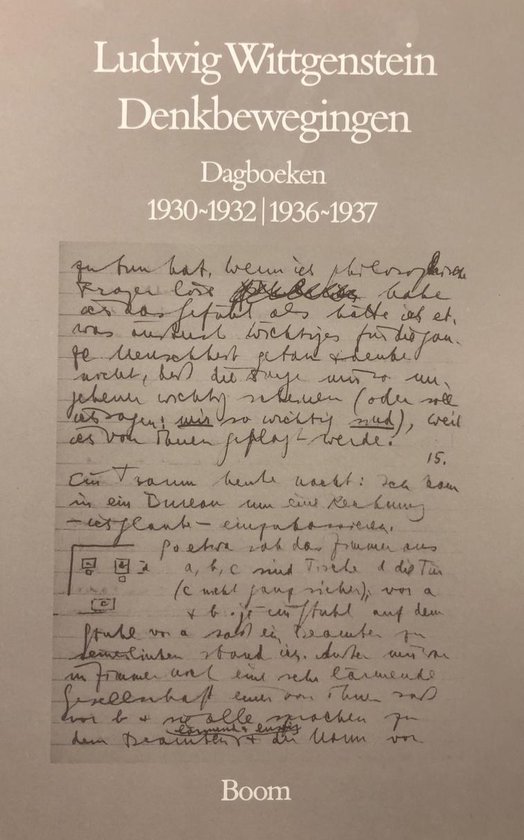 Ludwig Wittgenstein
Denkbewegingen
Dagboeken
1930~1932 | 1936~1937
zu tun hat. Wenn ich philosophische
Fragen löse habe
ich das Gefühl als hätte ich et-
was äußerst wichtiges für die gan-
ze Menschheit getan & denke
nicht, daß die Dinge mir so un-
geheuer wichtig scheinen (oder soll
ich sagen: mir so wichtig sind), weil
ich von ihnen geplagt werde.
15.
Ein Traum heute nacht: Ich kam
in ein Bureau um eine Rechnung
– ich glaube – einzukassieren.
So etwa sah das Zimmer aus
a, b, c sind Tische d die Tür
(c nicht ganz sicher), vor a
& b je ein Stuhl auf dem
Stuhl vor a saß ein Beamter zu
seiner linken stand ich. Außer mir war
im Zimmer noch eine sehr lärmende
Gesellschaft einer von ihnen saß
vor b & alle sprachen zu
lärmend & lustig
dem Beamten & der Mann vor
Boom